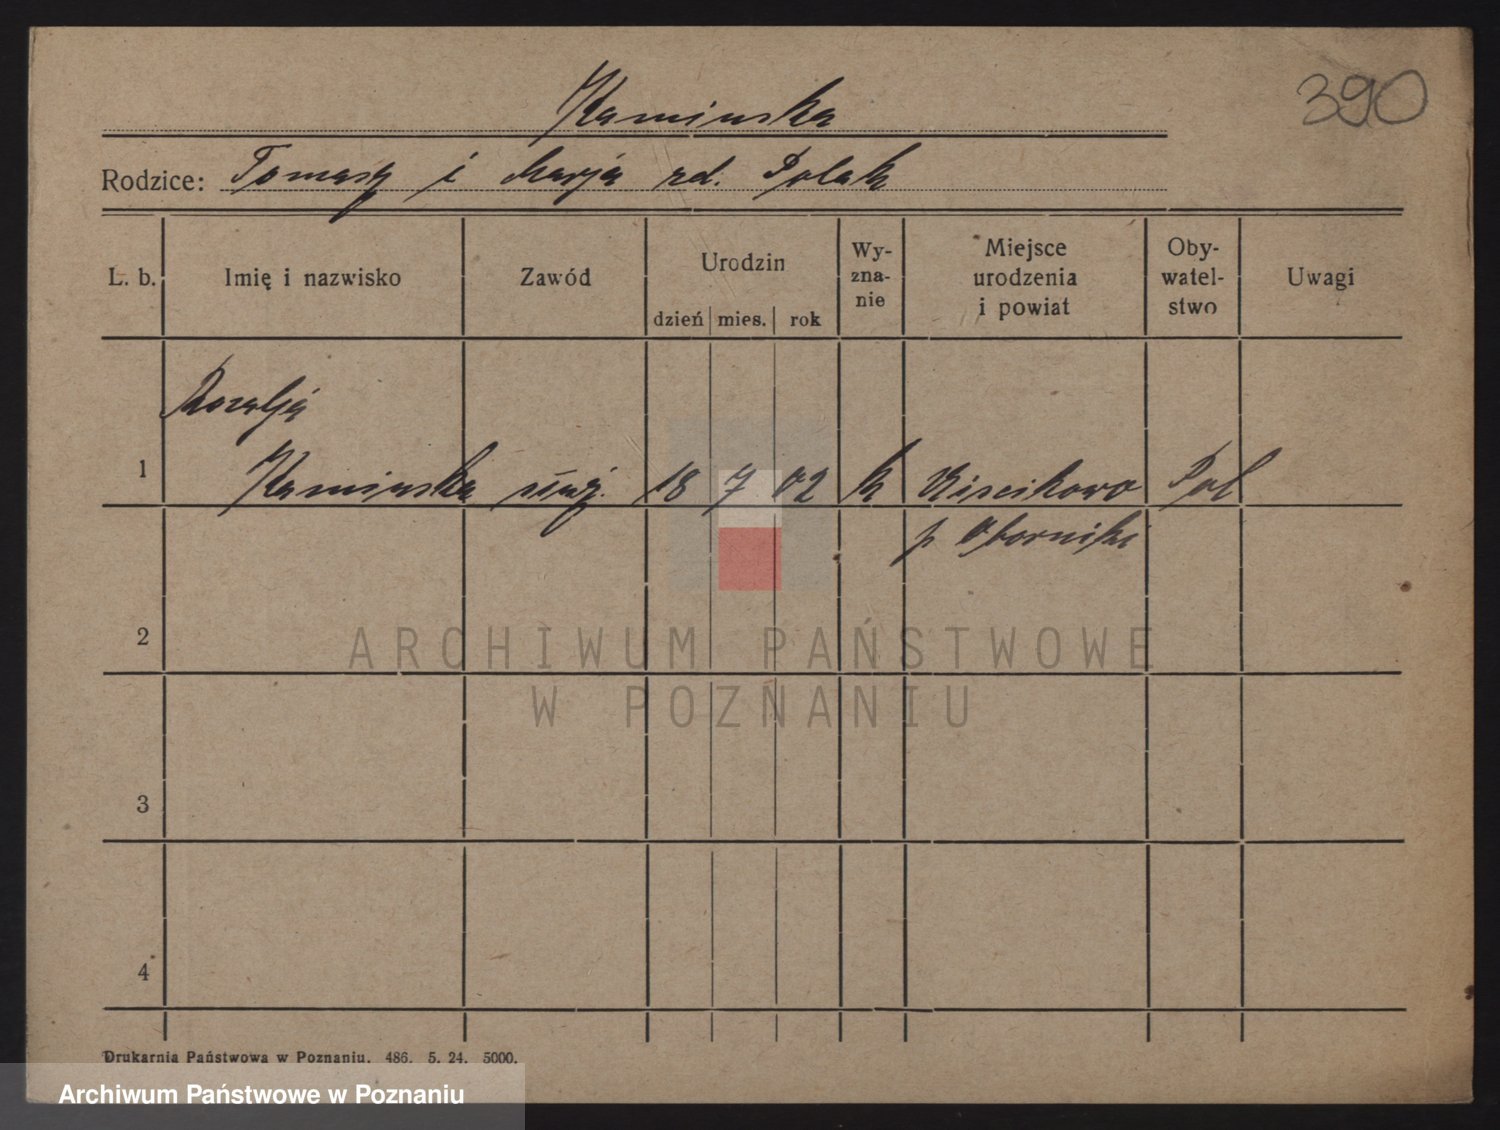 Kaminska
390
Rodzice: Tomasz i Marja rd. Polak
L. b. Imię i nazwisko Zawód Urodzin dzień mies. rok Wy-zna-nie Miejsce urodzenia i powiat Oby-watel-stwo Uwagi
Rozalja
1 Kaminska służ. 18 7 02 k Kiscikowo Pol
p Oborniki
2
ARCHIWUM PAŃSTWOWE
W POZNANIU
3
4
Drukarnia Państwowa w Poznaniu. 486. 5. 24. 5000.
Archiwum Państwowe w Poznaniu